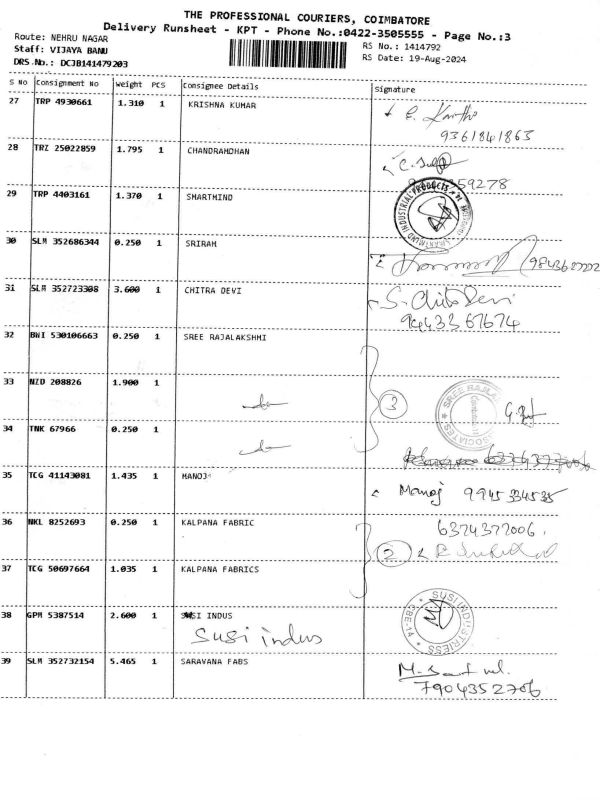 THE PROFESSIONAL COURIERS, COIMBATORE
Delivery Runsheet - KPT - Phone No.:0422-3505555 - Page No.:3
Route: NEHRU NAGAR
RS No.: 1414792
Staff: VIJAYA BANU
RS Date: 19-Aug-2024
DRS.No.: DCJB141479203
S No Consignment No Weight PCS Consignee Details Signature
27 TRP 4930661 1.310 1 KRISHNA KUMAR
9361841863
28 TRZ 25022859 1.795 1 CHANDRAMOHAN
59278
29 TRP 4403161 1.370 1 SHARTMIND
30 SLM 352686344 0.250 1 SRIRAM
31 SLM 352723308 3.600 1 CHITRA DEVI S. Chitra Devi
9443367674
32 BWI 530106663 0.250 1 SREE RAJALAKSHMI
33 NZD 208826 1.900 1 do 3
34 TNK 67966 0.250 1 do
35 TCG 41143081 1.435 1 MANOJ Manoj 9945334535
36 NKL 8252693 0.250 1 KALPANA FABRIC 6374377006.
2
37 TCG 50697664 1.035 1 KALPANA FABRICS
38 GPM 5387514 2.600 1 SUSI INDUS
Susi indus
SUSI INDUSTRIESS
CBE-14
39 SLM 352732154 5.465 1 SARAVANA FABS
7904352706